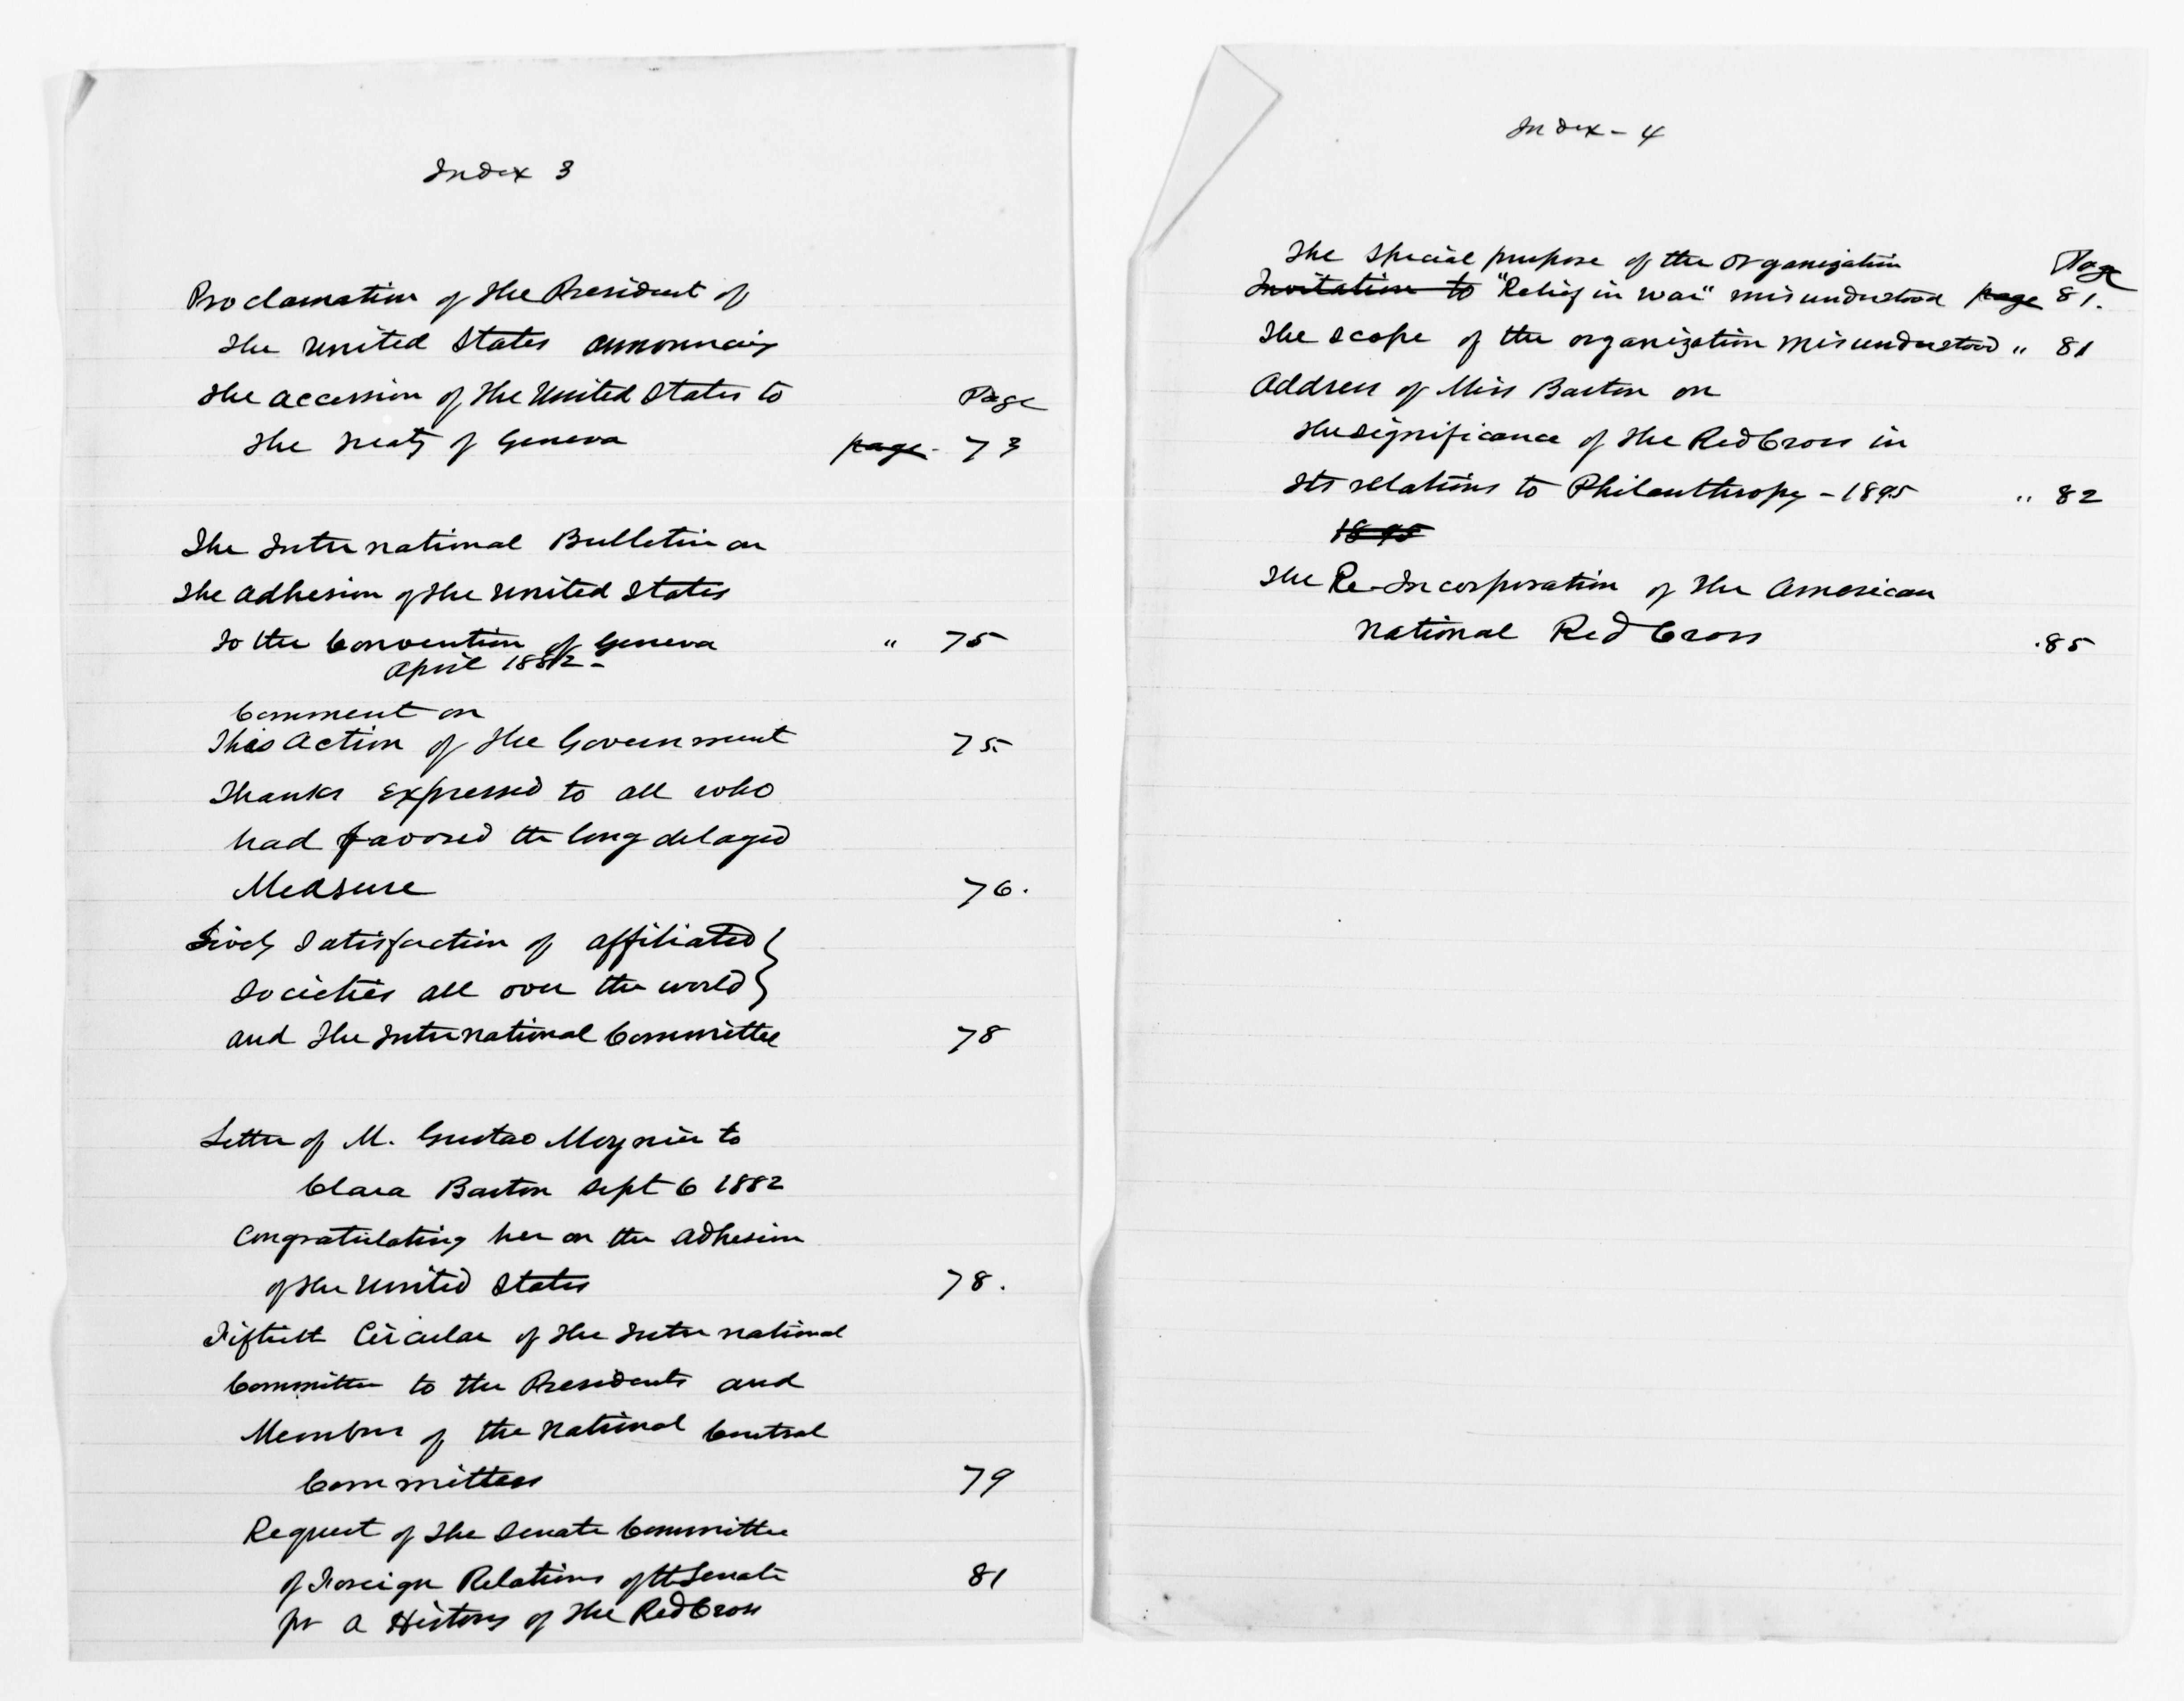 Index 3
Proclamation of The President of
The United States announcing
The accession of The United States to
Page
The Treaty of Geneva page - 73
The International Bulletin on
The adhesion of The United States
To the Convention of Geneva " 75
April 1882 -
Comment on
This Action of The Government 75
Thanks Expressed to all who
had favored the long delayed
Measure 76.
Lively Satisfaction of affiliated }
Societies all over the world }
and The International Committee 78
Letter of M. Gustav Moynier to
Clara Barton Sept 6 1882
Congratulating her on the adhesion
of The United States 78.
Fiftieth Circular of The International
Committee to the Presidents and
Members of the National Central
Committees 79
Request of The Senate Committee
of Foreign Relations of the Senate 81
for a History of The Red Cross
Index - 4
The Special purpose of the Organization
Page
Invitation to "Relief in War" misunderstood page 81.
The scope of the organization misunderstood " 81
Address of Miss Barton on
The significance of The Red Cross in
Its relations to Philanthropy - 1895 " 82
1895
The Re-Incorporation of The American
National Red Cross .85